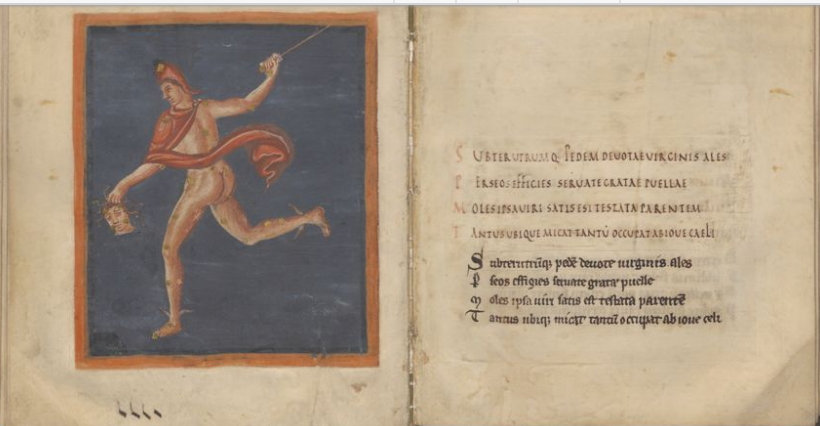 S UBTERUTRUMQ PEDEM DEUOTAE UIRGINIS ALES
P ERSEOS EFFICIES SERUATE GRATAE PUELLAE
M OLES IPSA UIRI SATIS EST TESTATA PARENTEM
T ANTUS UBIQUE MICAT TANTŪ OCCUPAT AB IOUE CAELI
Subterutrūq; pedē deuote uirginis ales
P seos effigies seruate grata puelle
Moles ipsa uiri satis est testata parentē
Tantus ubiq; micat tantū occupat ab ioue celi